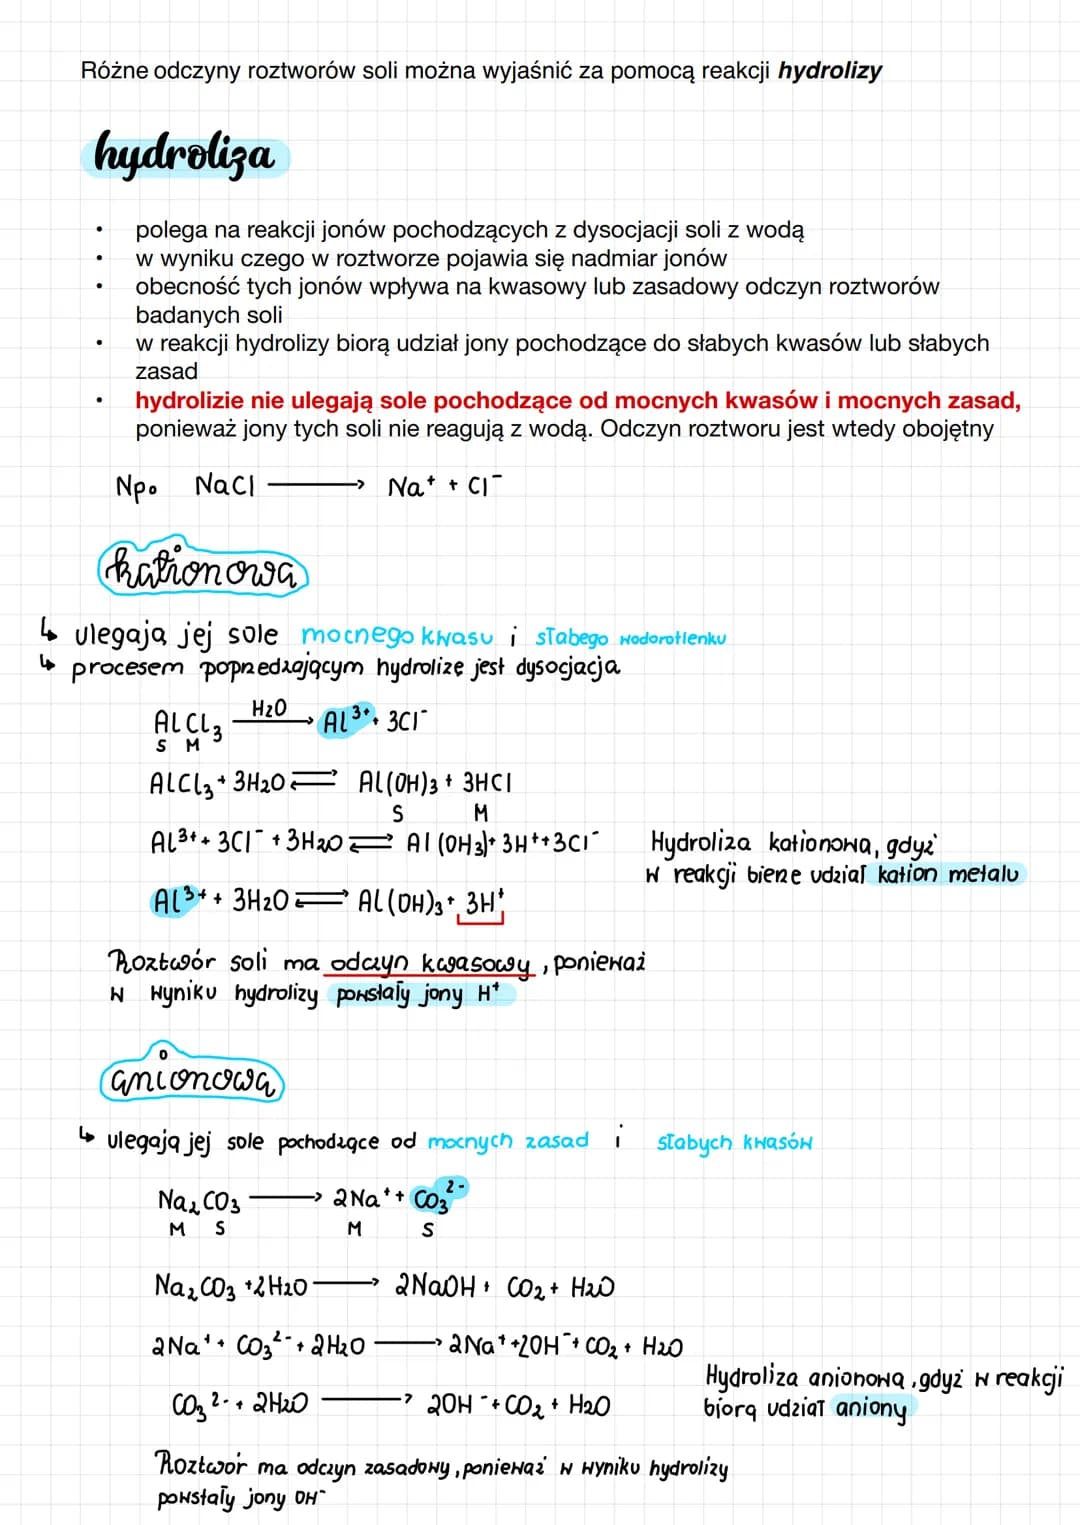 Różne odczyny roztworów soli można wyjaśnić za pomocą reakcji hydrolizy
hydroliza
• polega na reakcji jonów pochodzących z dysocjacji soli z wodą
• w wyniku czego w roztworze pojawia się nadmiar jonów
• obecność tych jonów wpływa na kwasowy lub zasadowy odczyn roztworów
badanych soli
• w reakcji hydrolizy biorą udział jony pochodzące do słabych kwasów lub słabych
zasad
• hydrolizie nie ulegają sole pochodzące od mocnych kwasów i mocnych zasad,
ponieważ jony tych soli nie reagują z wodą. Odczyn roztworu jest wtedy obojętny
Np. NaCl ⟶ Na⁺ + Cl⁻
kationowa
↳ ulegają jej sole mocnego kwasu i słabego wodorotlenku
↳ procesem poprzedzającym hydrolizę jest dysocjacja
AlCl₃ —H₂O→ Al³⁺ + 3Cl⁻
S M
AlCl₃ + 3H₂O ⇌ Al(OH)₃ + 3HCl
S M
Al³⁺ + 3Cl⁻ + 3H₂O ⇌ Al(OH₃)+ 3H⁺+3Cl⁻
Hydroliza kationowa, gdyż
w reakcji bierze udział kation metalu
Al³⁺ + 3H₂O ⇌ Al(OH)₃ + 3H⁺
Roztwór soli ma odczyn kwasowy, ponieważ
w wyniku hydrolizy powstały jony H⁺
anionowa
↳ ulegają jej sole pochodzące od mocnych zasad i słabych kwasów
Na₂CO₃ ⟶ 2Na⁺ + CO₃²⁻
M S M S
Na₂CO₃ +2H₂O ⟶ 2NaOH + CO₂ + H₂O
2Na⁺ + CO₃²⁻ + 2H₂O ⟶ 2Na⁺ +2OH⁻ + CO₂ + H₂O
Hydroliza anionowa, gdyż w reakcji
biorą udział aniony
CO₃²⁻ + 2H₂O ⟶ 2OH⁻ + CO₂ + H₂O
Roztwór ma odczyn zasadowy, ponieważ w wyniku hydrolizy
powstały jony OH⁻